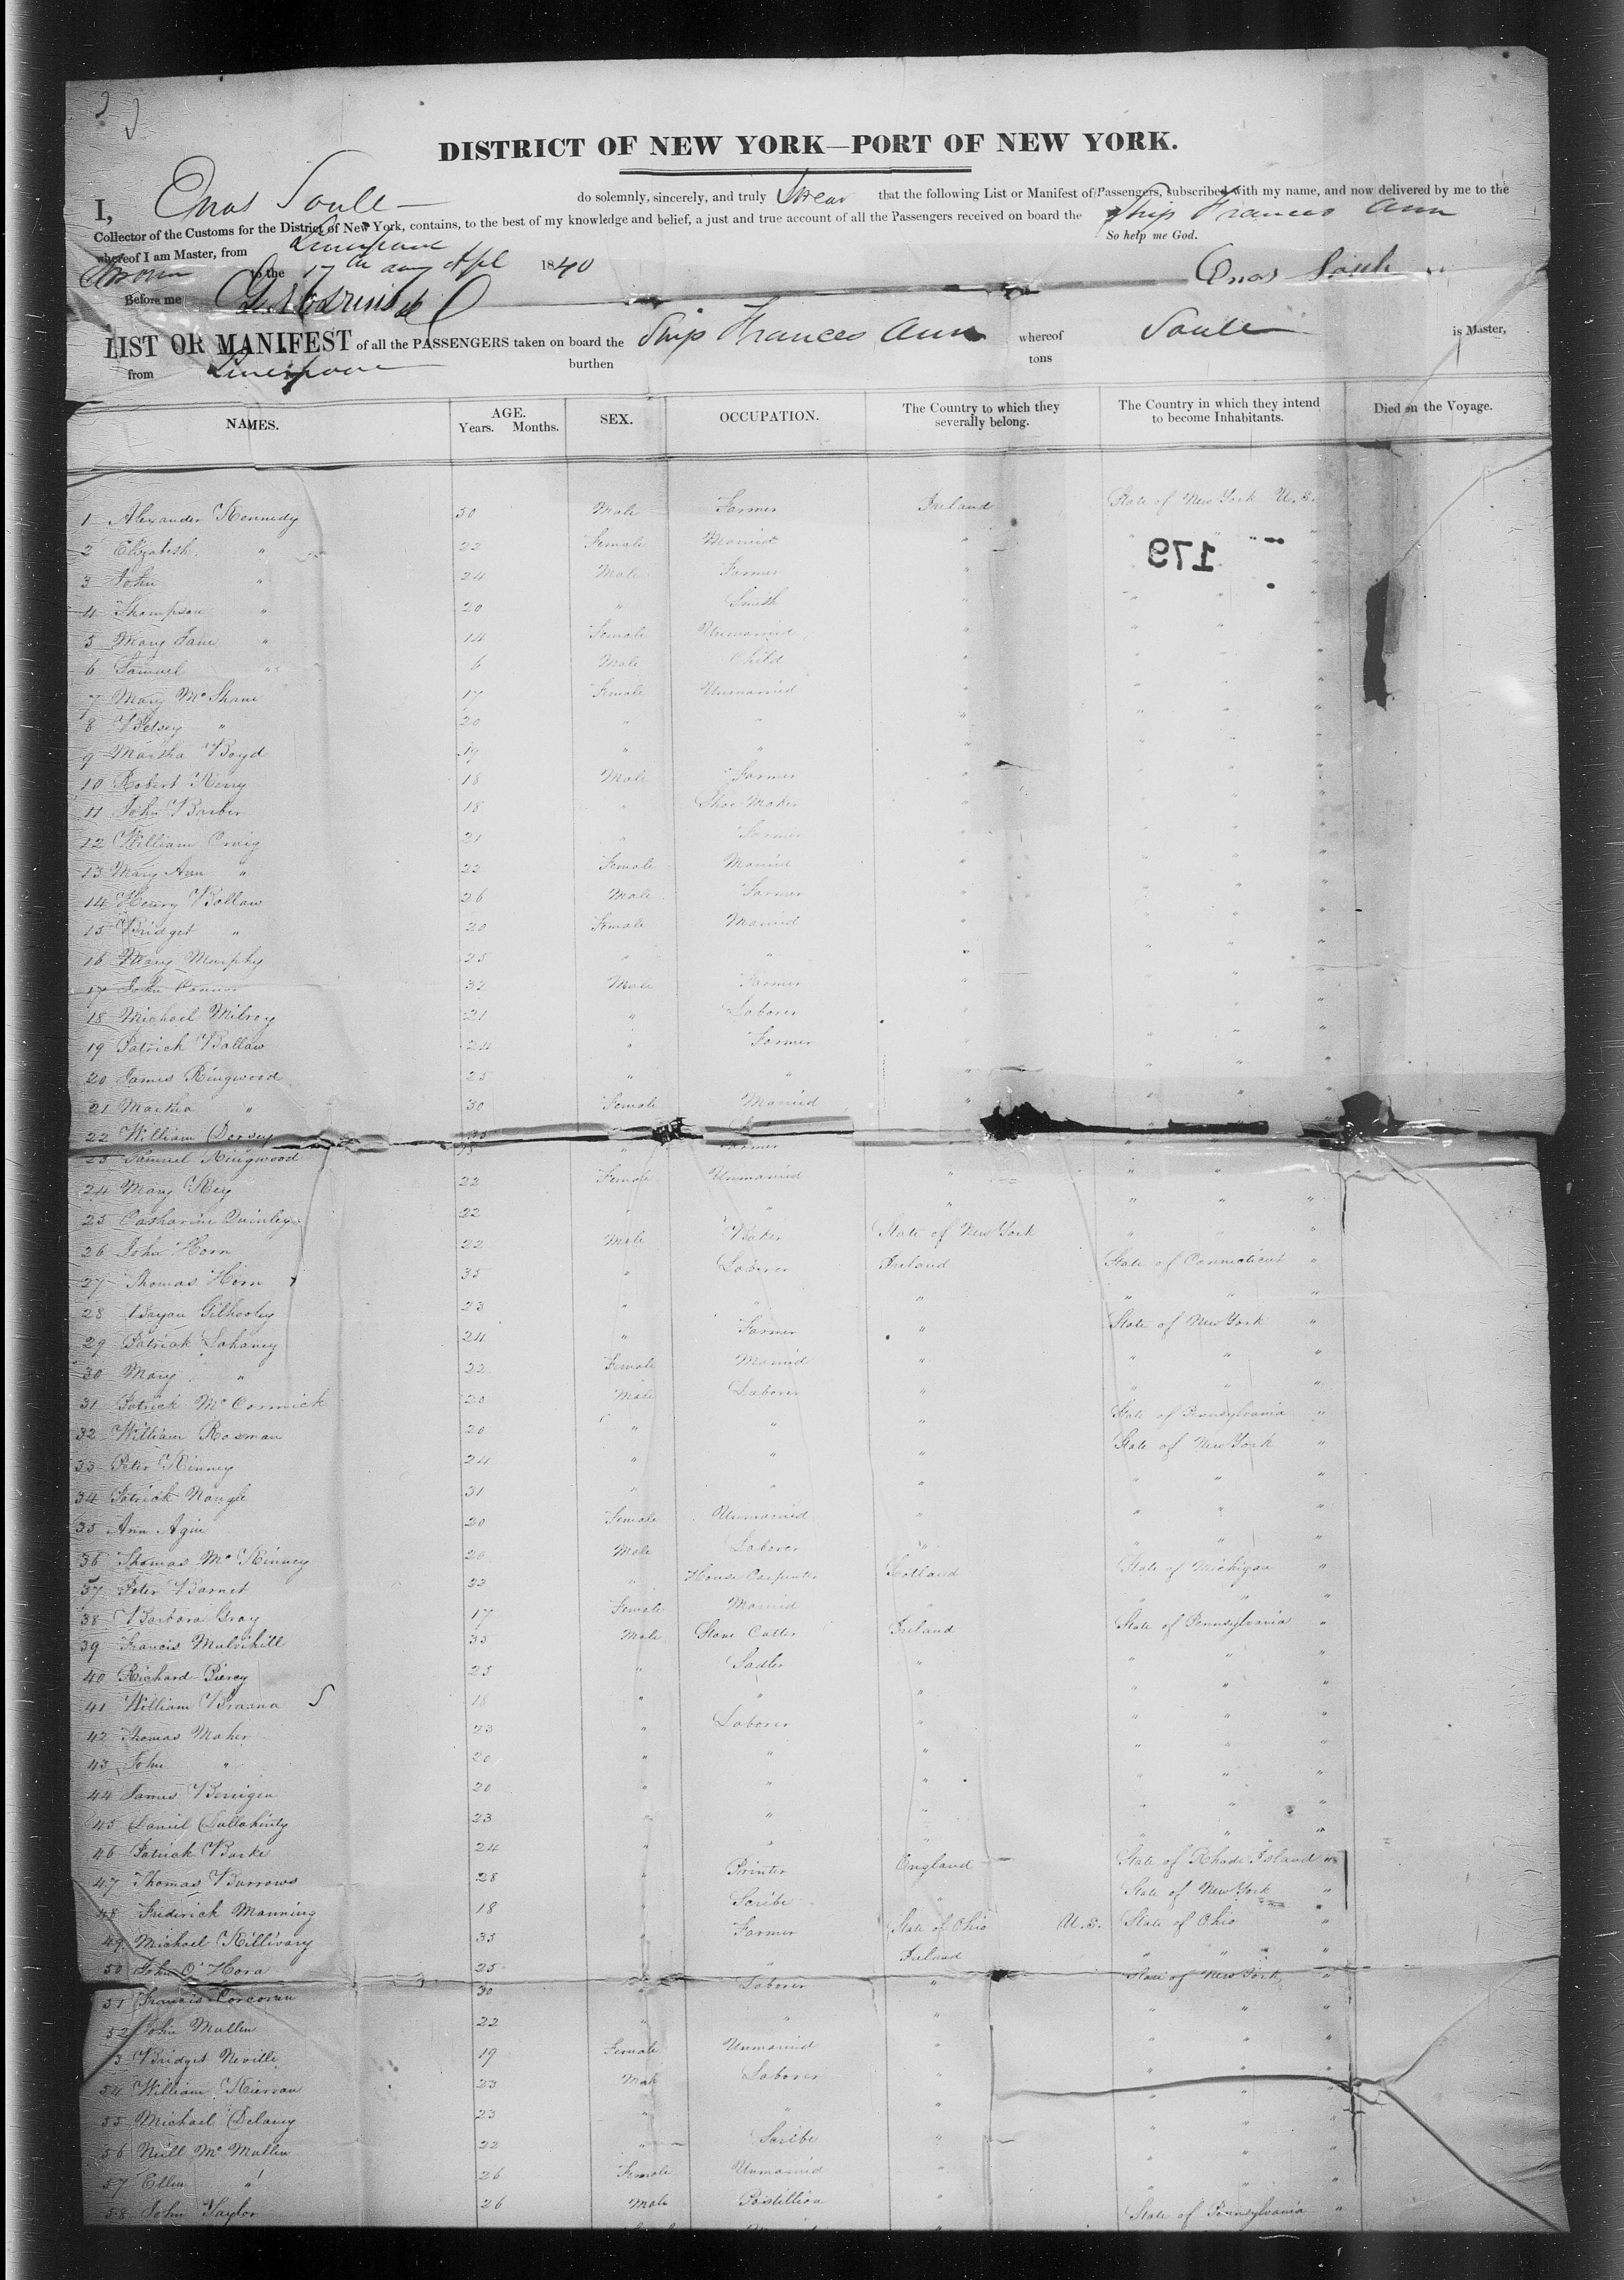 DISTRICT OF NEW YORK—PORT OF NEW YORK.
I, Enos Soule do solemnly, sincerely, and truly Swear that the following List or Manifest of Passengers, subscribed with my name, and now delivered by me to the
Collector of the Customs for the District of New York, contains, to the best of my knowledge and belief, a just and true account of all the Passengers received on board the Ship Frances Ann
whereof I am Master, from Liverpool So help me God.
Sworn to the 17th day Apl 1840 Enos Soule
Before me
LIST OR MANIFEST of all the PASSENGERS taken on board the Ship Frances Ann whereof Soule is Master,
from Liverpool burthen tons
NAMES. AGE. Years. Months. SEX. OCCUPATION. The Country to which they severally belong. The Country in which they intend to become Inhabitants. Died on the Voyage.
1 Alexander Kennedy 30 Male Farmer Ireland State of New York U.S.
2 Elizabeth " 22 Female Married " " " "
179
3 John " 24 Male Farmer " " " "
4 Thompson " 20 " Smith " " " "
5 Mary Jane " 14 Female Unmarried " " " "
6 Samuel " 6 Male Child " " " "
7 Mary McShane 17 Female Unmarried " " " "
8 Betsey " 20 " " " " " "
9 Martha Boyd 19 " " " " " "
10 Robert Kerry 18 Male Farmer " " " "
11 John Barber 18 " Shoe Maker " " " "
12 William Craig 21 " Farmer " " " "
13 Mary Ann " 22 Female Married " " " "
14 Henry Ballaw 26 Male Farmer " " " "
15 Bridget " 20 Female Married " " " "
16 Mary Murphy 25 " " " " " "
17 John Connor 32 Male Farmer " " " "
18 Michael Milroy 21 " Laborer " " " "
19 Patrick Ballaw 24 " Farmer " " " "
20 James Ringwood 25 " " " " " "
21 Martha " 30 Female Married " " " "
22 William Dorsey 35
23 Samuel Ringwood 18 " Farmer " " "
24 Mary Key 22 Female Unmarried " " " "
25 Catharine Quinley 22 " " " " " "
26 John Horn 22 Male Baker State of New York " " "
27 Thomas Horn 35 " Laborer Ireland State of Connecticut "
28 Bryan Gilhooley 23 " " " " " "
29 Patrick Lahaney 24 " Farmer " State of New York "
30 Mary " 22 Female Married " " " "
31 Patrick McCormick 20 Male Laborer " " " "
32 William Rosman 20 " " " State of Pennsylvania "
33 Peter Kinney 24 " " " State of New York "
34 Patrick Nangle 31 " " " " " "
35 Ann Agin 20 Female Unmarried " " " "
36 Thomas McKinney 20 Male Laborer " " " "
37 Peter Barnet 22 " House Carpenter Scotland State of Michigan "
38 Barbara Gray 17 Female Married " " " "
39 Francis Mulvihill 35 Male Stone Cutter Ireland State of Pennsylvania "
40 Richard Piercy 25 " Sadler " " " "
41 William 18 " " " " " "
42 Thomas Maher 23 " Laborer " " " "
43 John " 20 " " " " " "
44 James Berrigen 20 " " " " " "
45 Daniel Dallahinty 23 " " " " " "
46 Patrick Burke 24 " " " " " "
47 Thomas Burrows 28 " Printer England State of Rhode Island "
48 Frederick Manning 18 " Scribe " State of New York "
49 Michael Killivary 35 " Farmer State of Ohio U.S. State of Ohio "
50 John O'Hara 25 " " Ireland " " "
51 Francis Corcoran 30 " Laborer " State of New York "
52 John Mullen 22 " " " " " "
53 Bridget Neville 19 Female Unmarried " " " "
54 William Kiernan 23 Male Laborer " " " "
55 Michael Delaney 23 " " " " " "
56 Neill McMullen 22 " Scribe " " " "
57 Ellen " 26 Female Unmarried " " " "
58 John Taylor 26 Male Postillion " State of Pennsylvania "